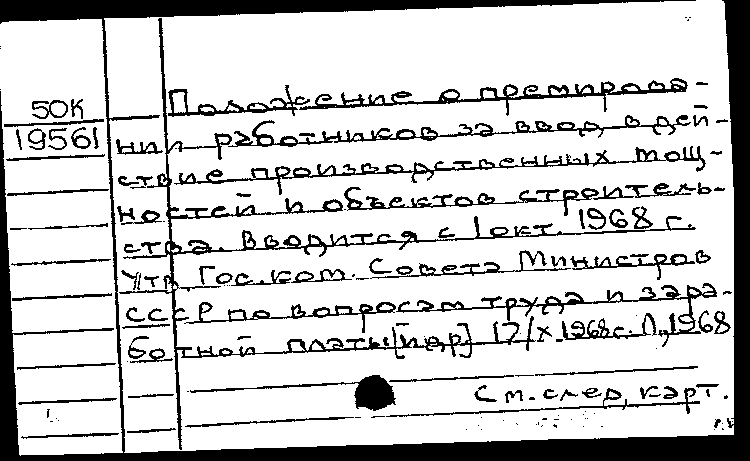 50К
19561
Положение о премирова-
нии работников за ввод в дей-
ствие производственных мощ-
ностей и объектов строитель-
ства. Вводится с 1 окт. 1968 г.
Утв. Гос. ком. Совета Министров
СССР по вопросам труда и зара-
ботной платы [и др] 17/X 1968 г. Л., 1968
См. след. карт.